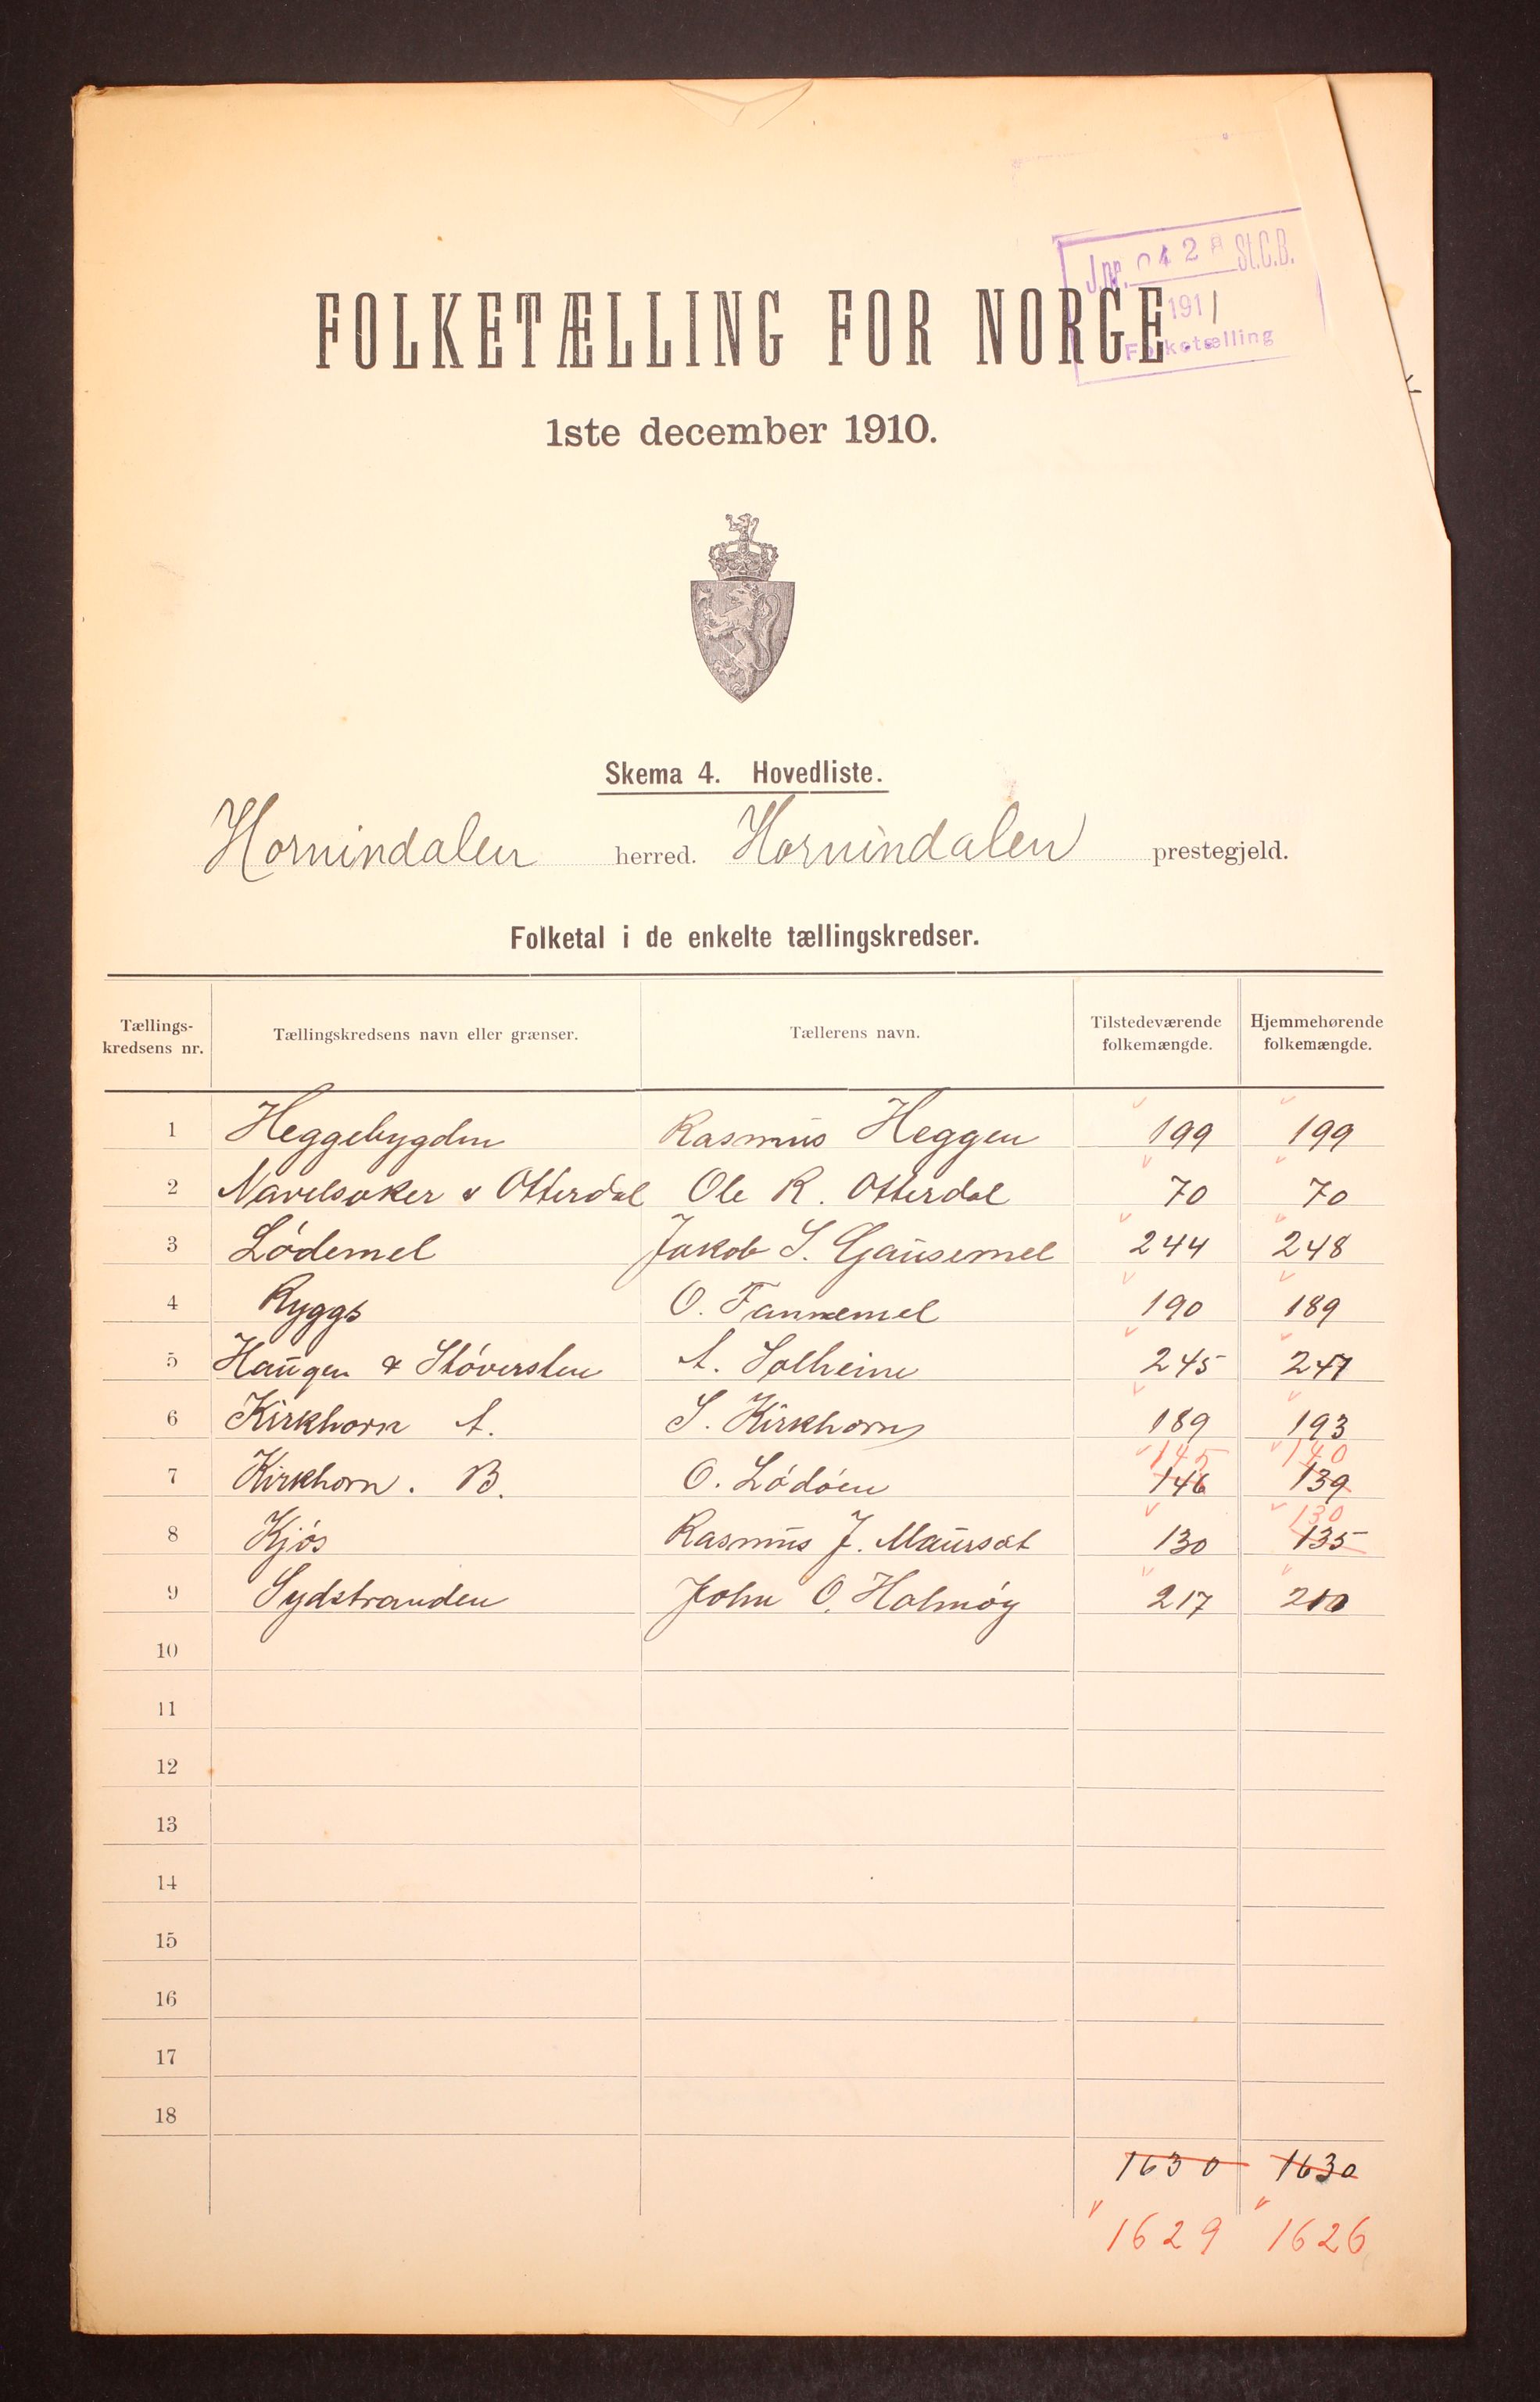 J.nr. 0428 St.C.B.
1911
Folketælling
FOLKETÆLLING FOR NORGE
1ste december 1910.
Skema 4. Hovedliste.
Hornindalen herred. Hornindalen prestegjeld.
Folketal i de enkelte tællingskredser.
Tællings-kredsens nr. Tællingskredsens navn eller grænser. Tællerens navn. Tilstedeværende folkemængde. Hjemmehørende folkemængde.
1 Heggebygden Rasmus Heggen 199 199
2 Navelsaker & Otterdal Ole R. Otterdal 70 70
3 Lødemel Jakob S. Gausemel 244 248
4 Ryggs O. Tannemel 190 189
5 Haugen & Støversten A. Solheim 245 247
6 Kirkhorn A. S. Kirkhorn 189 193
145 140
7 Kirkhorn. B. O. Lødøen 146 139
130
8 Kjøs Rasmus J. Maurset 130 135
9 Sydstranden John O. Holmøy 217 210
10
11
12
13
14
15
16
17
18
1630 1630
1629 1626